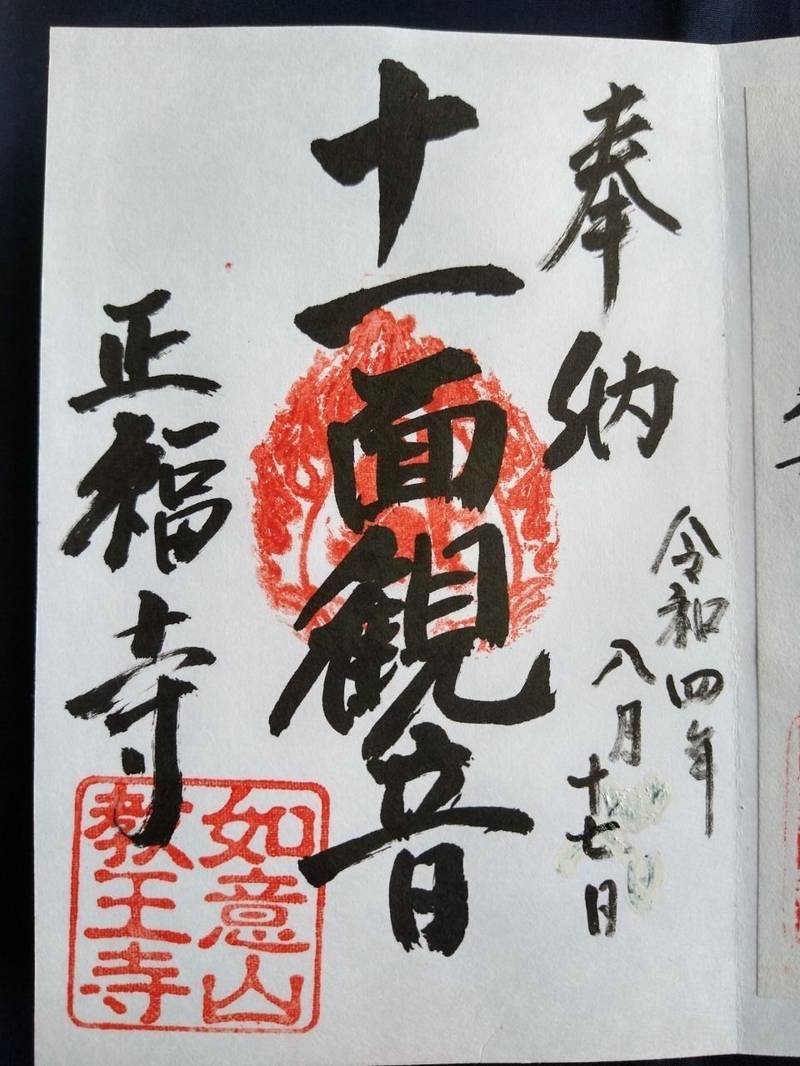 奉納
令和四年
八月
十七日
十一面観音
正福寺
如意山
教王寺